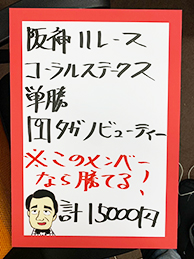 阪神11レース
コーラルステークス
単勝
14タガノビューティー
※このメンバー
なら勝てる!
計15000円